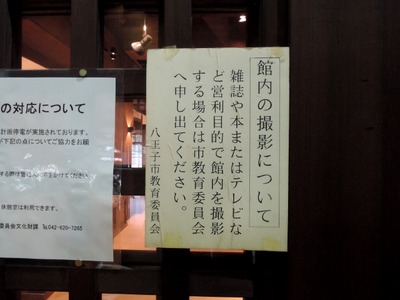 館内の撮影について
雑誌や本またはテレビな
ど営利目的で館内を撮影
する場合は市教育委員会
へ申し出てください。
八王子市教育委員会
の対応について
計画停電が実施されております。
下記の点についてご協力をお願
休憩室は利用できます。
委員会文化財課 ℡042-620-7265